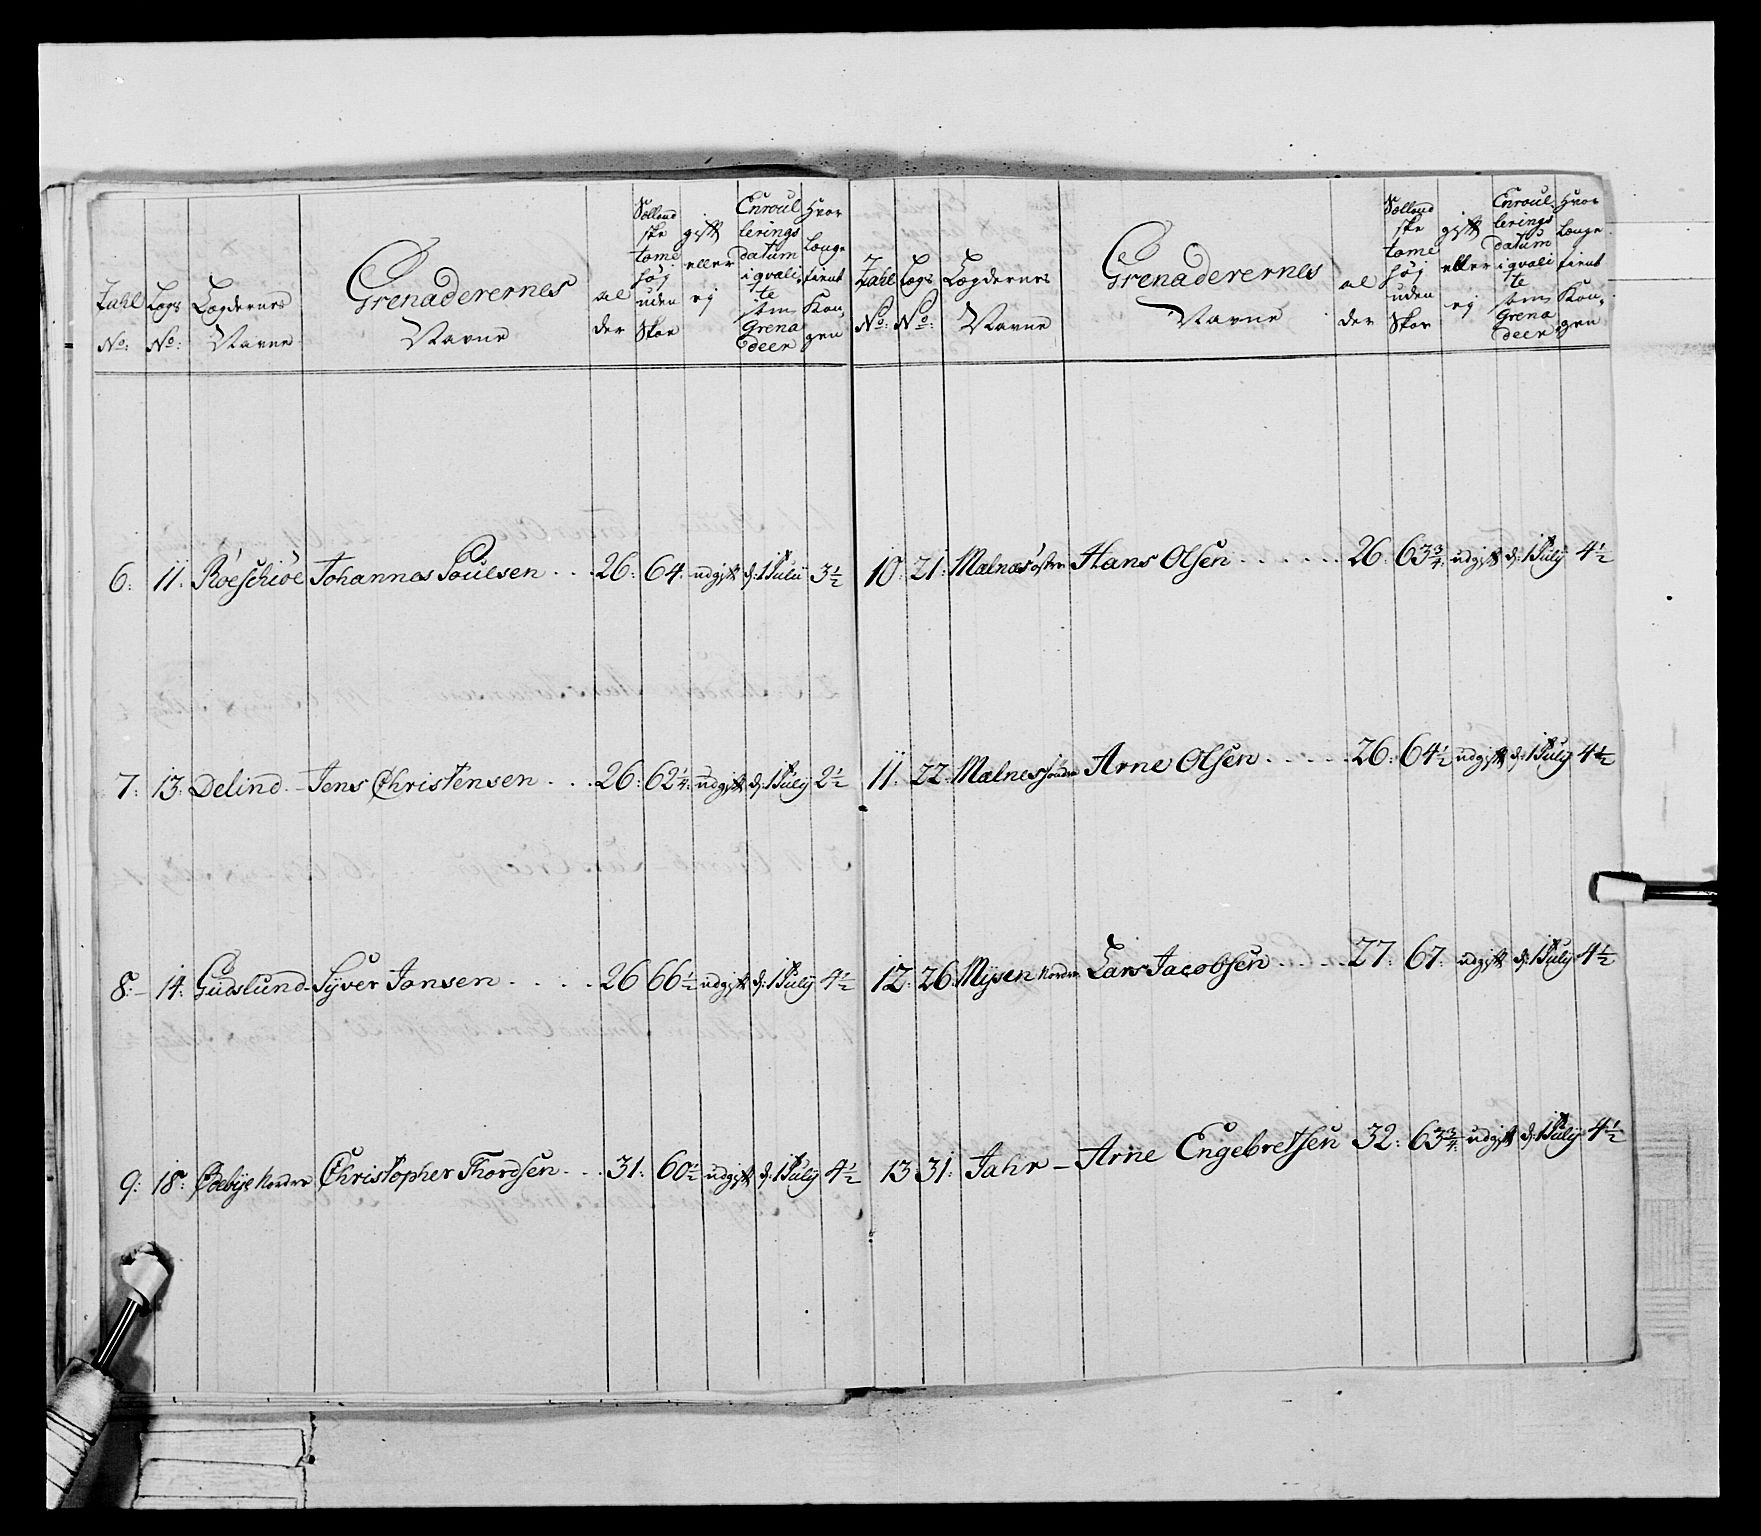 Zahl No:
Legs No:
Lægdernes Navne
Grenaderernes Navne
al der
Sællend ske tome høj uden Skoe
gift eller ej
Enroul lerings datum i qvali te som Grena deer
Hvor Længe tient Kon, gen
6: 11. Röeschiöe Johannes Poulsen . . . 26: 64. udgift d: 1 July 3½
7: 13: Delind - Jens Christensen . . . 26: 62¼: udgift d: 1 July 2½
8: - 14: Gudslund - Syver Jansen . . . . 26 66½ udgift d: 1 July 4½
9: 18: Nordre Christopher Thordsen . . . 31: 60½ udgift d: 1 July 4½
Zahl No:
Legs No:
Lægdernes Navne
Grenaderernes Navne
al der
Sællend ske tome høj uden Skoe
gift eller ej
Enroul lerings datum i qvali te som Grena deer
Hvor Længe tient Kon, gen
10: 21: Mælnæs østre Hans Olsen . . . . . . 26: 63¾ udgift d: 1 July 4½
11: 22: Mælnes søndre Arne Olsen . . . . . 26: 64½ udgift d: 1 July 4½
12: 26: Mysen Nordre Lars Jacobsen . . . . 27: 67: udgift d: 1 July 4½
13 31: Jahr - Arne Engebretsen 32: 63¾ udgift d: 1 July 4½